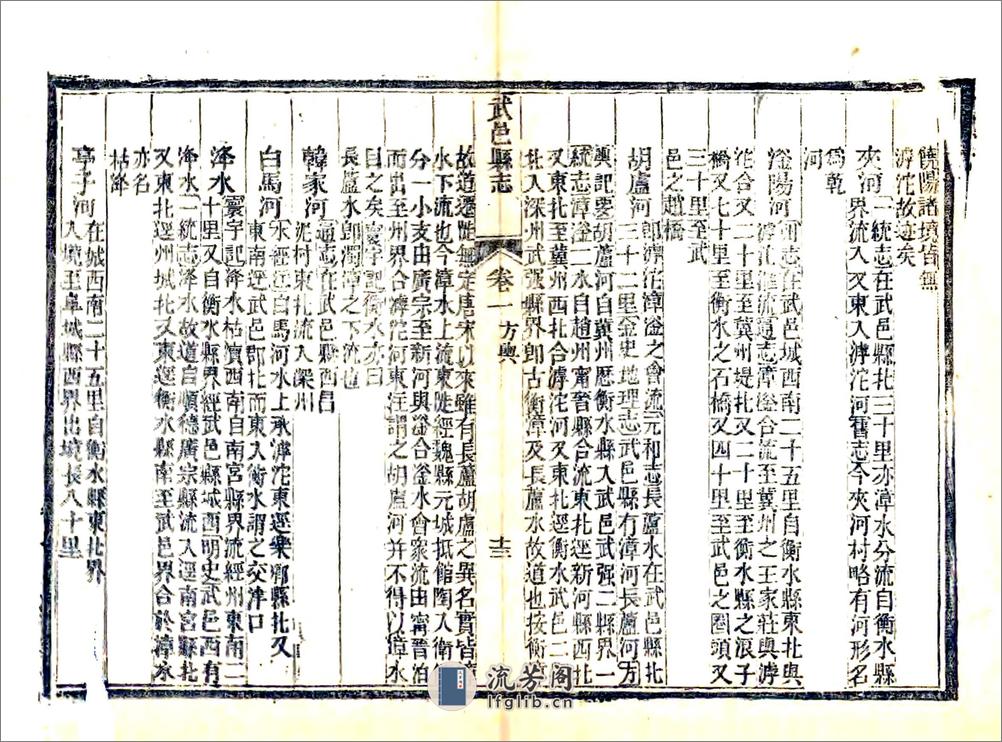 饒陽諸境皆無
滹沱故迹矣
夾河一統志在武邑縣北三十里亦漳水分流自衡水縣
界流入又東入滹沱河舊志今夾河村略有河形名
爲乾
河
滏陽河河志在武邑城西南二十五里自衡水縣東北與
滹沱滙流通志漳滏合流至冀州之王家莊與滹
沱合又二十里至冀州堤北又二十里至衡水縣之浪子
橋又七十里至衡水之石橋又四十里至武邑之圈頭又
三十里至武
邑之趙橋
胡盧河即滹沱漳滏之會流元和志長蘆水在武邑縣北
三十二里金史地理志武邑縣有漳河長蘆河方
輿記要胡蘆河自冀州歷衡水縣入武邑武强二縣界一
統志漳滏二水自趙州甯晉縣合流東北逕新河縣西北
又東北至冀州西北合滹沱河又東北逕衡水武邑二縣
北入深州武强縣界即古衡漳及長蘆水故道也按衡漳
武邑縣志
卷一 方輿
十三
故道遷徙無定唐宋以來雖有長蘆胡盧之異名實皆漳
水下流也今漳水上流東徙經魏縣元城抵館陶入衛
分一小支由廣宗至新河與滏合滏水會衆流由甯晉泊
而出至州界合滹沱河東注謂之胡盧河并不得以漳水
目之矣寰宇記衡水亦曰
長蘆水即濁漳之下流也
韓家河通志在武邑縣西呂
泥村東北流入深州
白馬河水經注白馬河水上承滹沱東逕樂鄉縣北又
東南逕武邑郡北而東入衡水謂之交津口
洚水寰宇記洚水枯瀆西南自南宮縣界流經州東南二
十里又自衡水縣界經武邑縣城西明史武邑西有
洚水一統志洚水故道自順德廣宗縣流入逕南宮縣北
又東北逕州城北又東逕衡水縣南至武邑界合於漳水
亦名
枯洚
亭子河在城西南二十五里自衡水縣東北界
入境至阜城縣西界出境長八十里
流芳阁
lfglib.cn